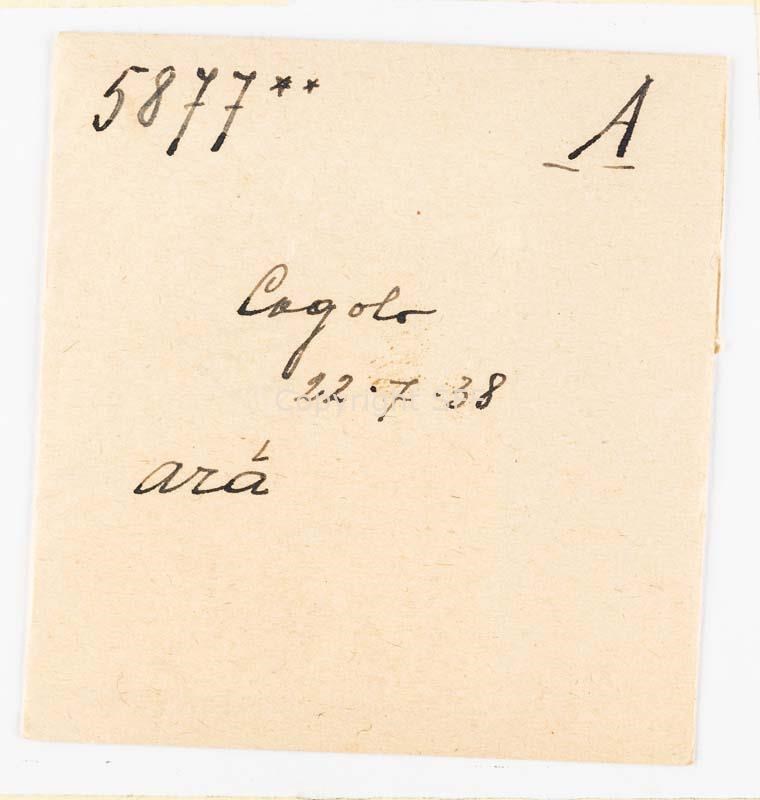 5877** A
Cogolo
22.7.38
ará